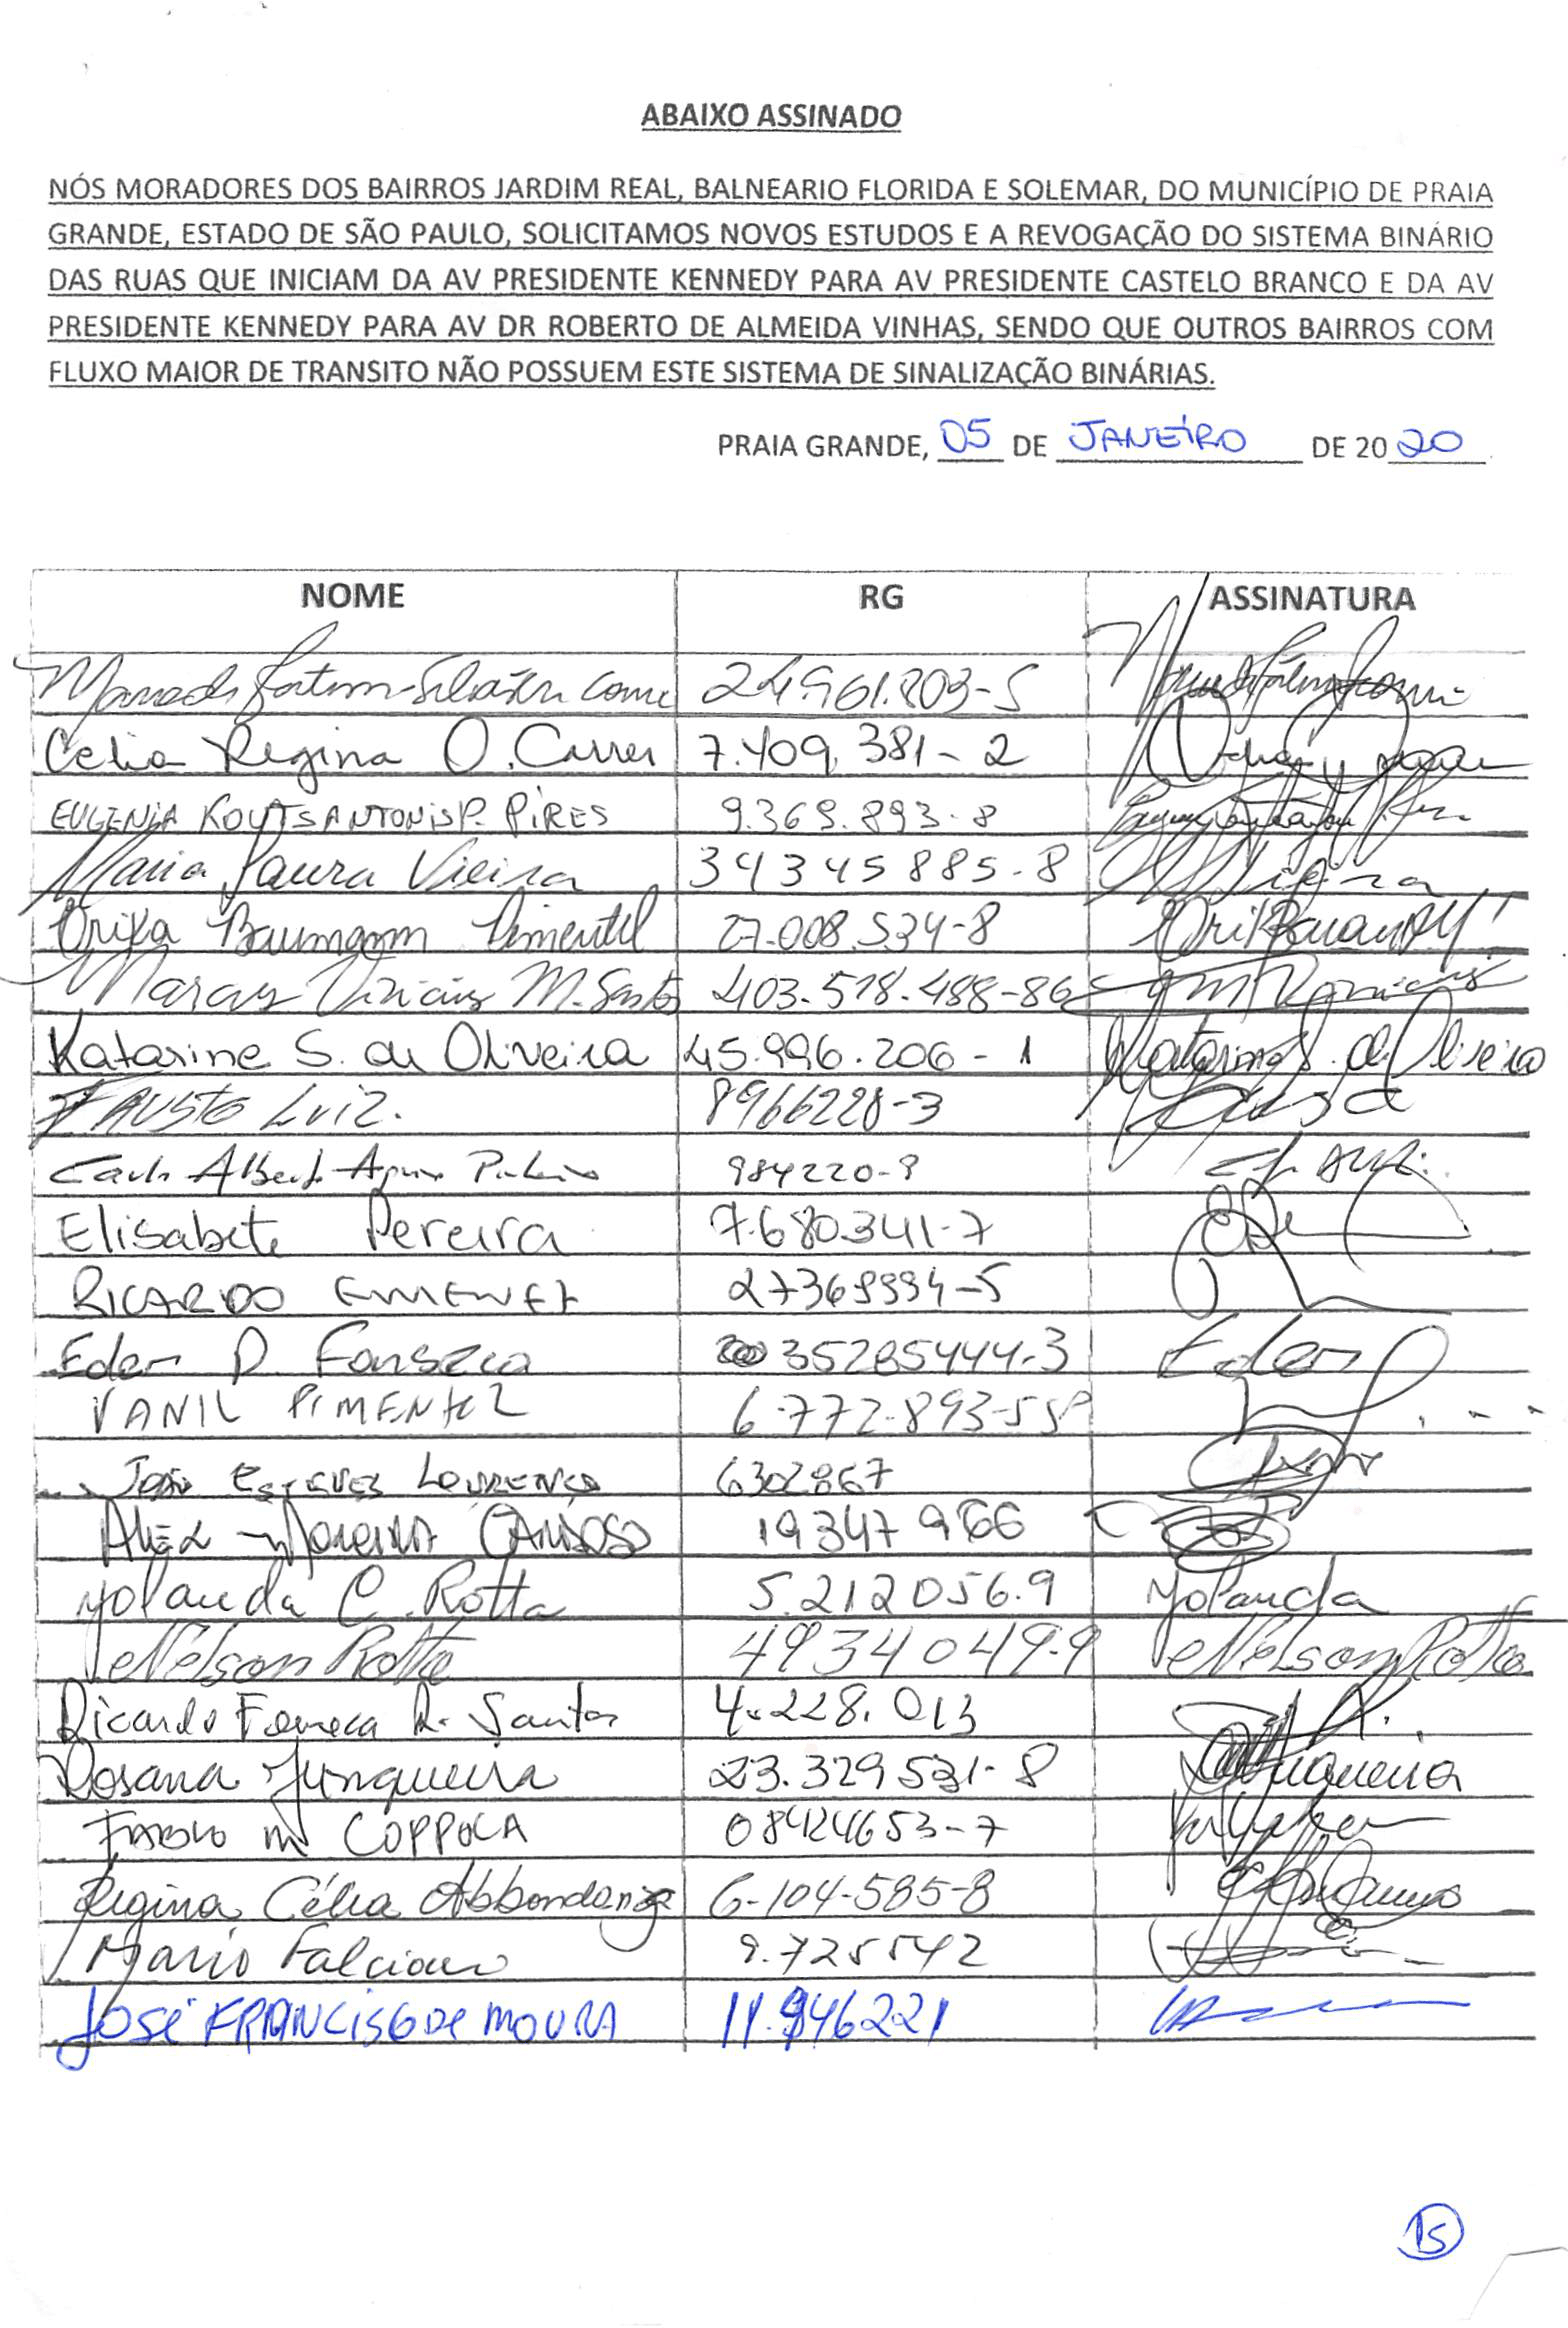 ABAIXO ASSINADO
NÓS MORADORES DOS BAIRROS JARDIM REAL, BALNEARIO FLORIDA E SOLEMAR, DO MUNICÍPIO DE PRAIA
GRANDE, ESTADO DE SÃO PAULO, SOLICITAMOS NOVOS ESTUDOS E A REVOGAÇÃO DO SISTEMA BINÁRIO
DAS RUAS QUE INICIAM DA AV PRESIDENTE KENNEDY PARA AV PRESIDENTE CASTELO BRANCO E DA AV
PRESIDENTE KENNEDY PARA AV DR ROBERTO DE ALMEIDA VINHAS, SENDO QUE OUTROS BAIRROS COM
FLUXO MAIOR DE TRANSITO NÃO POSSUEM ESTE SISTEMA DE SINALIZAÇÃO BINÁRIAS.
PRAIA GRANDE, 05 DE JANEIRO DE 2020
NOME RG ASSINATURA
24.961.203-5
Celia Regina O. 7.409.381-2
EUGENIA KOUTSANTONIS P. PIRES 9.369.893-8
Maria Laura Vieira 34345885-8
Erika Baumgarm Pimentel 27.008.534-8
Marcus Vinicius M. Santos 403.518.488-86
Katarine S. de Oliveira 45.996.206-1 Katarine S. de Oliveira
FAUSTO LUIZ. 8966228-3
Carlos Alberto 984220-9
Elisabete Pereira 7.680.341-7
RICARDO 27368994-5
Eder P. Fonseca 35285444-3 Eder
VANIL PIMENTEL 6.772.893-
João ESTEVES LOURENÇO 6302867
ALEX MOREIRA CARDOSO 19347966
Yolanda C. Rotta 5.212056.9 Yolanda
Nelson Rotta 4934049-9 Nelson Rotta
Ricardo Fonseca R. Santos 4.228.013
Rosana Junqueira 23.329531-8 Junqueira
FABIO M COPPOLA 08424653-7
Regina Célia Abbondanza 6-104-585-8
Mario Falciano 9.725542
JOSÉ FRANCISCO DE MOURA 11.946221
15